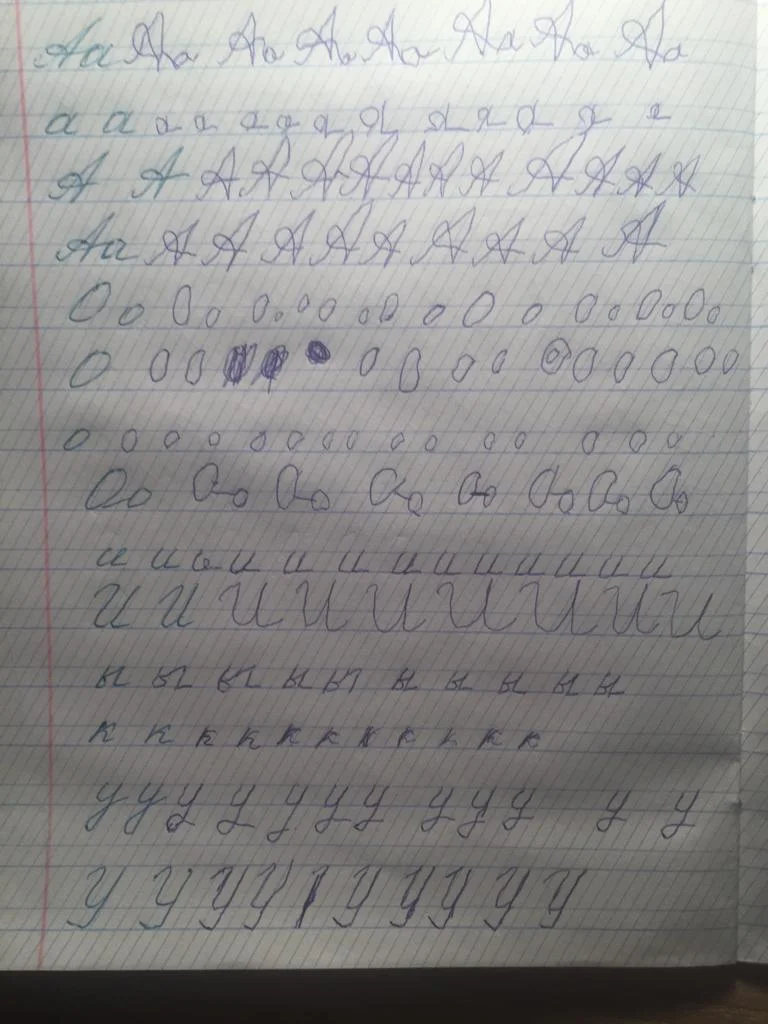 Аа Аа Аа Аа Аа Аа Аа Аа
а а а а а а а а а а а а а
А А А А А А А А А А А А А
Аа А А А А А А А А А
Оо Оо О о о о о о о О о О о Оо Оо
О О О О О О О О О О О О О О О
о о о о о о о о о о о о о о о
Оо Оо Оо Оо Оо Оо Оо Оо
и и и и и и и и и и и и и
И И И И И И И И И
ы ы ы ы ы ы ы ы ы ы
к к к к к к к к к к к
у у у у у у у у у у у у
У У У У У У У У У